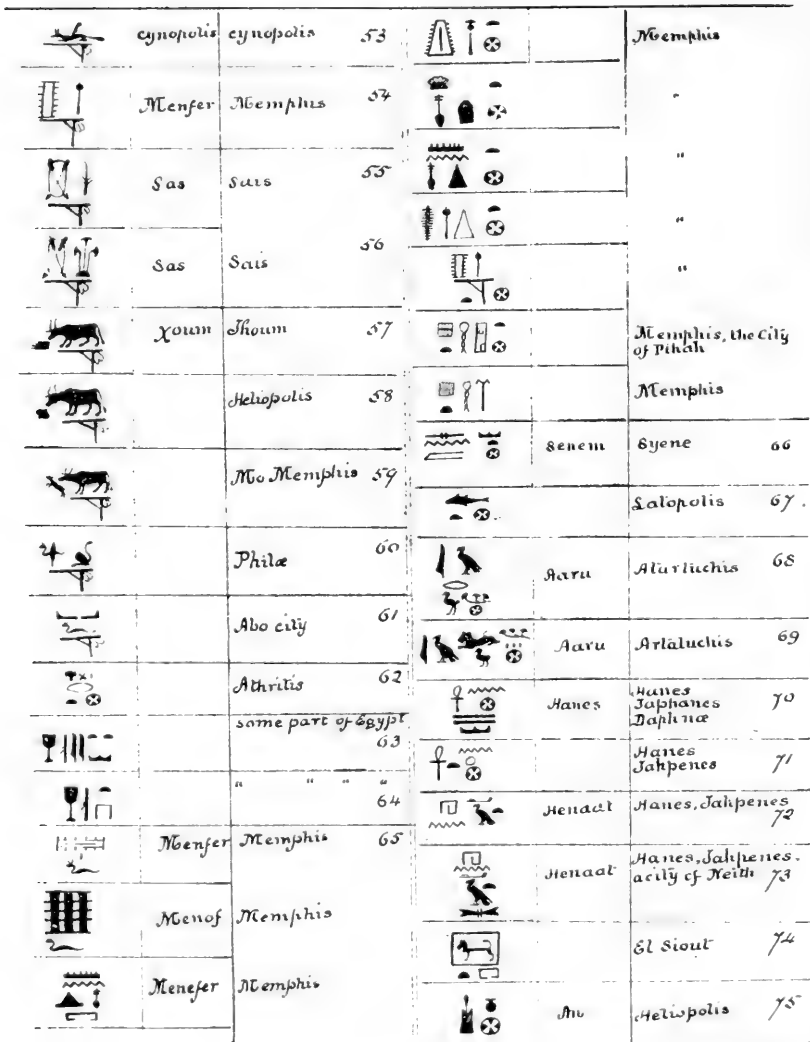 cynopolis cynopolis 53
Menfer Memphis 54
Sas Sais 55
Sas Sais 56
Xoum Thoum 57
Heliopolis 58
Mo Memphis 59
Philæ 60
Abo city 61
Athritis 62
some part of Egypt
63
" " " "
64
Menfer Memphis 65
Menof Memphis
Menefer Memphis
Memphis
"
"
"
"
Memphis, the City
of Pthah
Memphis
Senem Syene 66
Latopolis 67.
Aaru 68
Aaru 69
Hanes Hanes
Taphanes 70
Daphnæ
Hanes
Tahpenes 71
Henaat Hanes, Tahpenes
72
Henaat Hanes, Tahpenes.
a city of Neith 73
El Siout 74
An Heliopolis 75